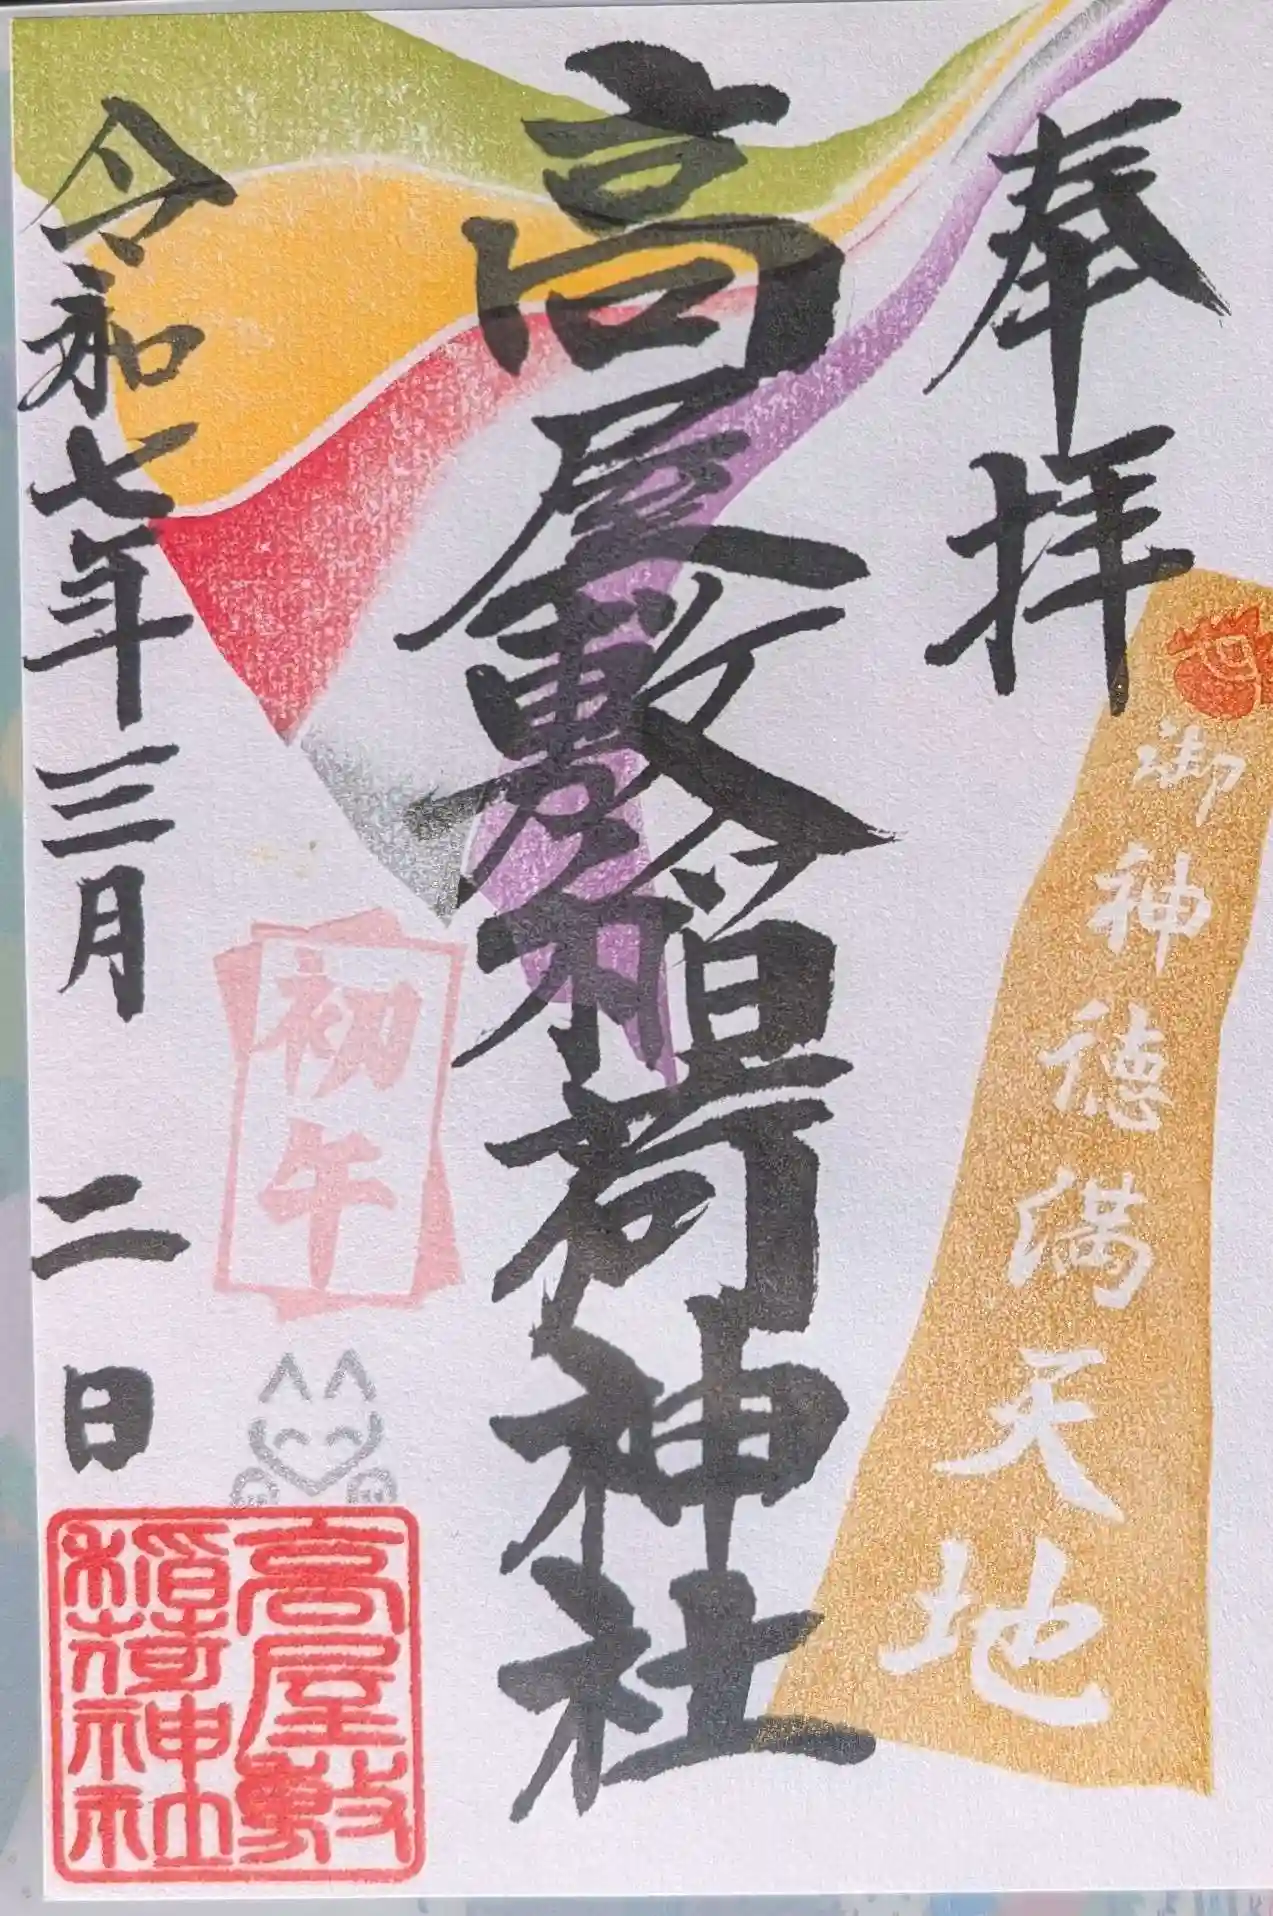 奉拝
御神徳満天地
高屋敷稲荷神社
初午
令和七年三月二日
高屋敷
稲荷神社